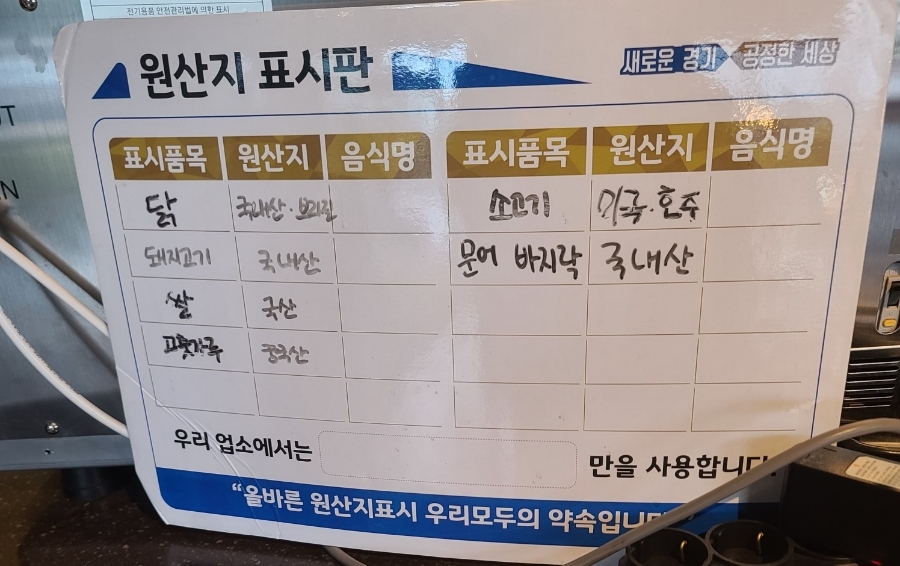 전기용품 안전관리법에 의한 표시
원산지 표시판
새로운 경기 공정한 세상
표시품목 원산지 음식명 표시품목 원산지 음식명
닭 국내산·브라질 소고기 미국·호주
돼지고기 국내산 문어 바지락 국내산
쌀 국산
고춧가루 중국산
우리 업소에서는 만을 사용합니다.
“올바른 원산지표시 우리모두의 약속입니다”